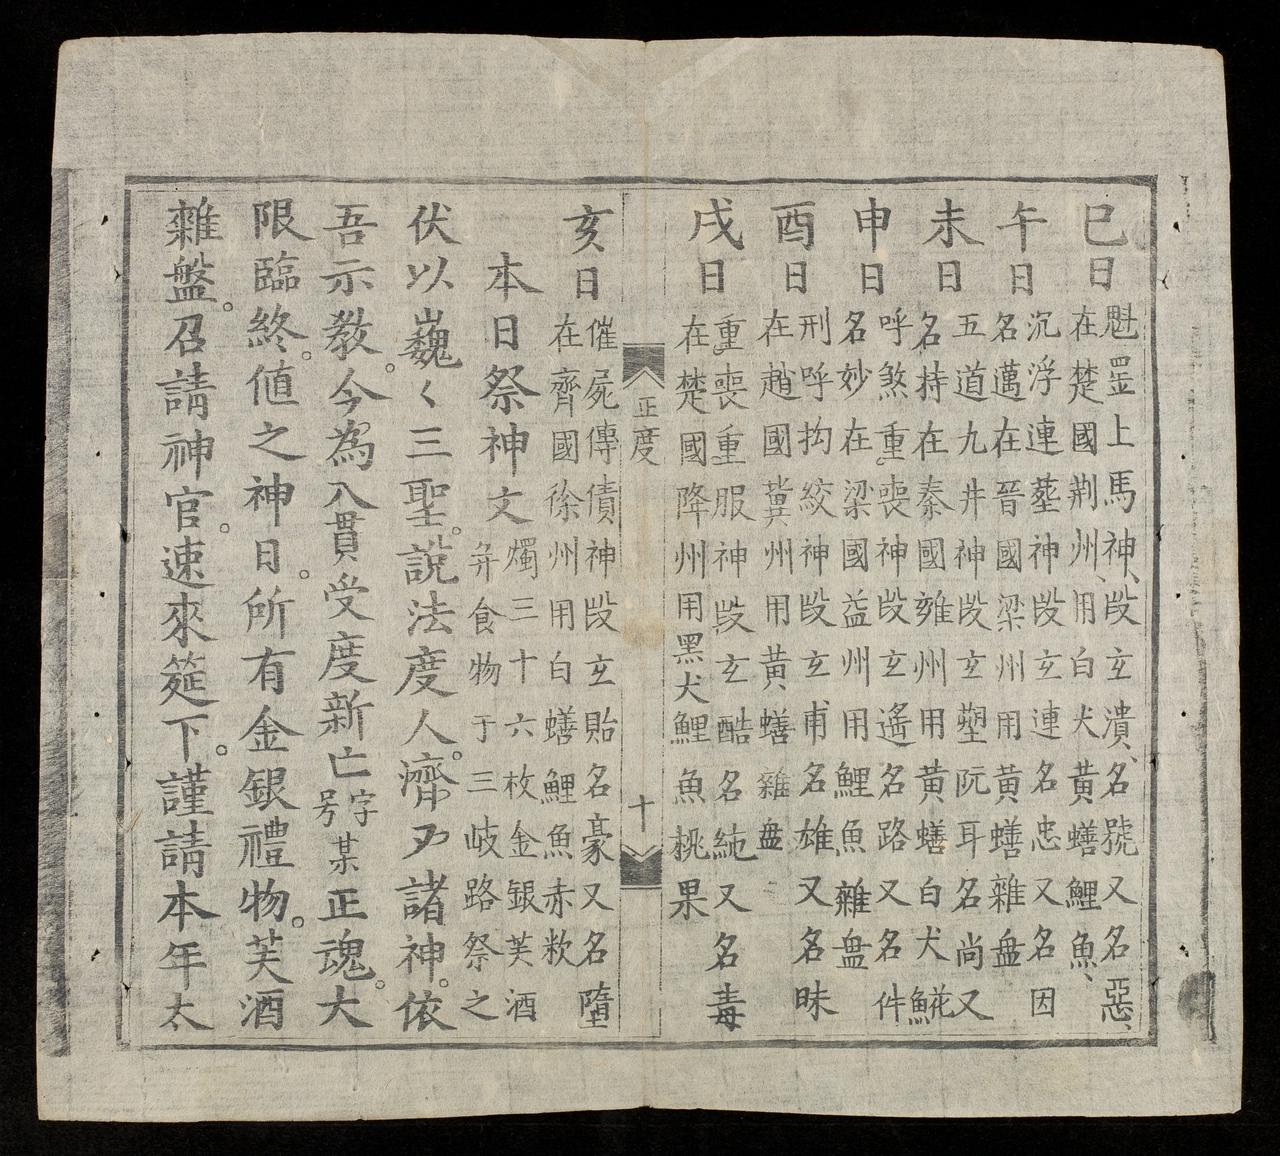 巳日魁罡上馬神、段玄潰、名號又名惡、
在楚國荆州、用白犬黃蟮鯉魚、
午日沉浮連塟神段玄連名忠又名因
名邁在晉國梁州用黃蟮雜盘
未日五道九井神段玄塑阮耳名尚又
名持在秦國雍州用黃蟮白犬
申日呼煞重喪神段玄遙名路又名件
名妙在梁國益州用鯉魚雜盘
酉日刑呼拘絞神段玄甫名雄又名昧
在趙國冀州用黃蟮雜盘
戌日重喪重服神段玄酷名純又名毒
在楚國降州用黑犬鯉魚桃果
正度
十
亥日催屍傳債神段玄貽名豪又名墮
在齊國徐州用白蟮鯉魚赤
本日祭神文燭三十六枚金銀芙酒
弁食物于三岐路祭之
伏以巍〻三聖。說法度人。濟𠃣諸神。依
吾示教。今為八貫受度新亡字号某正魂。大
限臨終。値之神日。所有金銀禮物。芙酒
雜盤。召請神官。速來筵下。謹請本年太